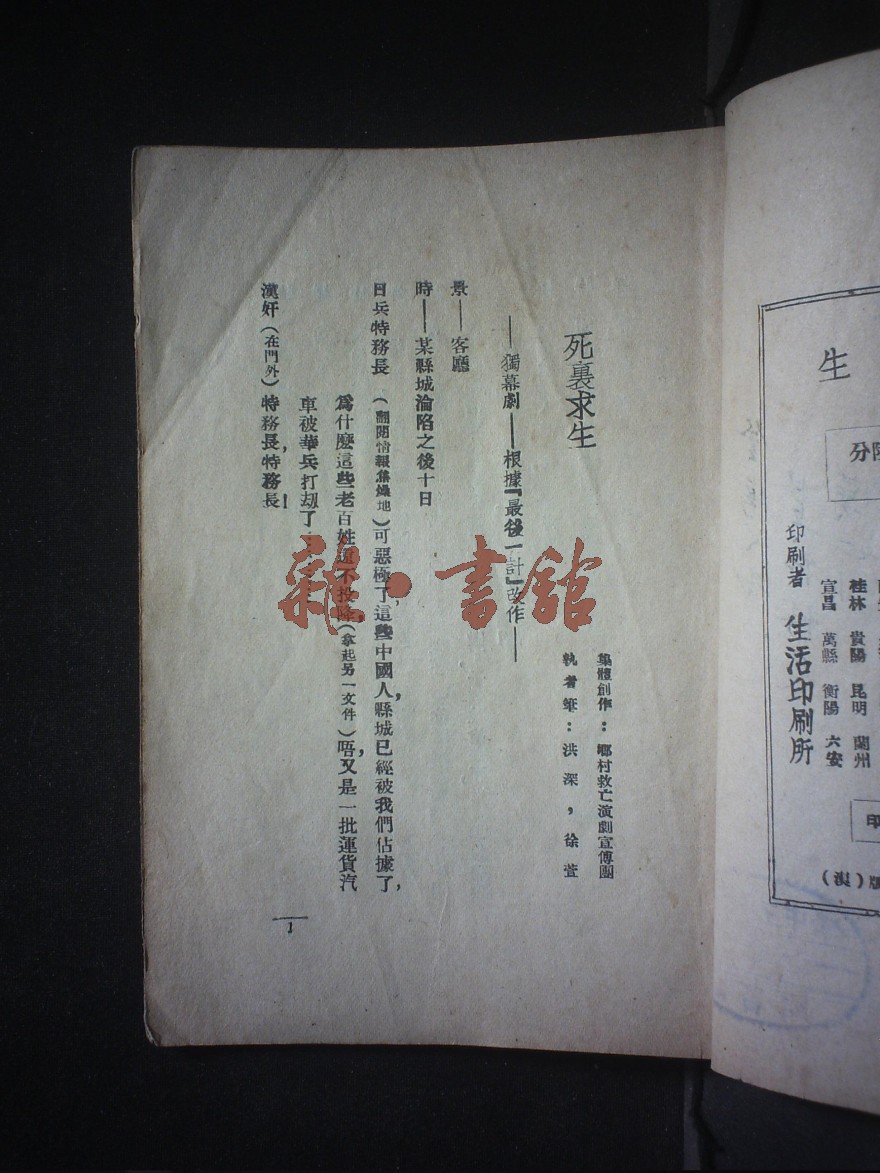 生
印刷者 生活印刷所
桂林 貴陽 昆明 蘭州
宜昌 萬縣 衡陽 六安
死裏求生
——獨幕劇——根據『最後一計』改作——
集體創作：鄉村救亡演劇宣傳團
執者筆：洪深，徐萱
景——客廳
時——某縣城淪陷之後十日
日兵特務長 （翻閱情報焦燥地）可惡極了，這些中國人，縣城已經被我們佔據了，
爲什麼這些老百姓還不投降，（拿起另一文件）唔，又是一批運貨汽
車被華兵打劫了
漢奸（在門外）特務長，特務長！
1
雜·書館